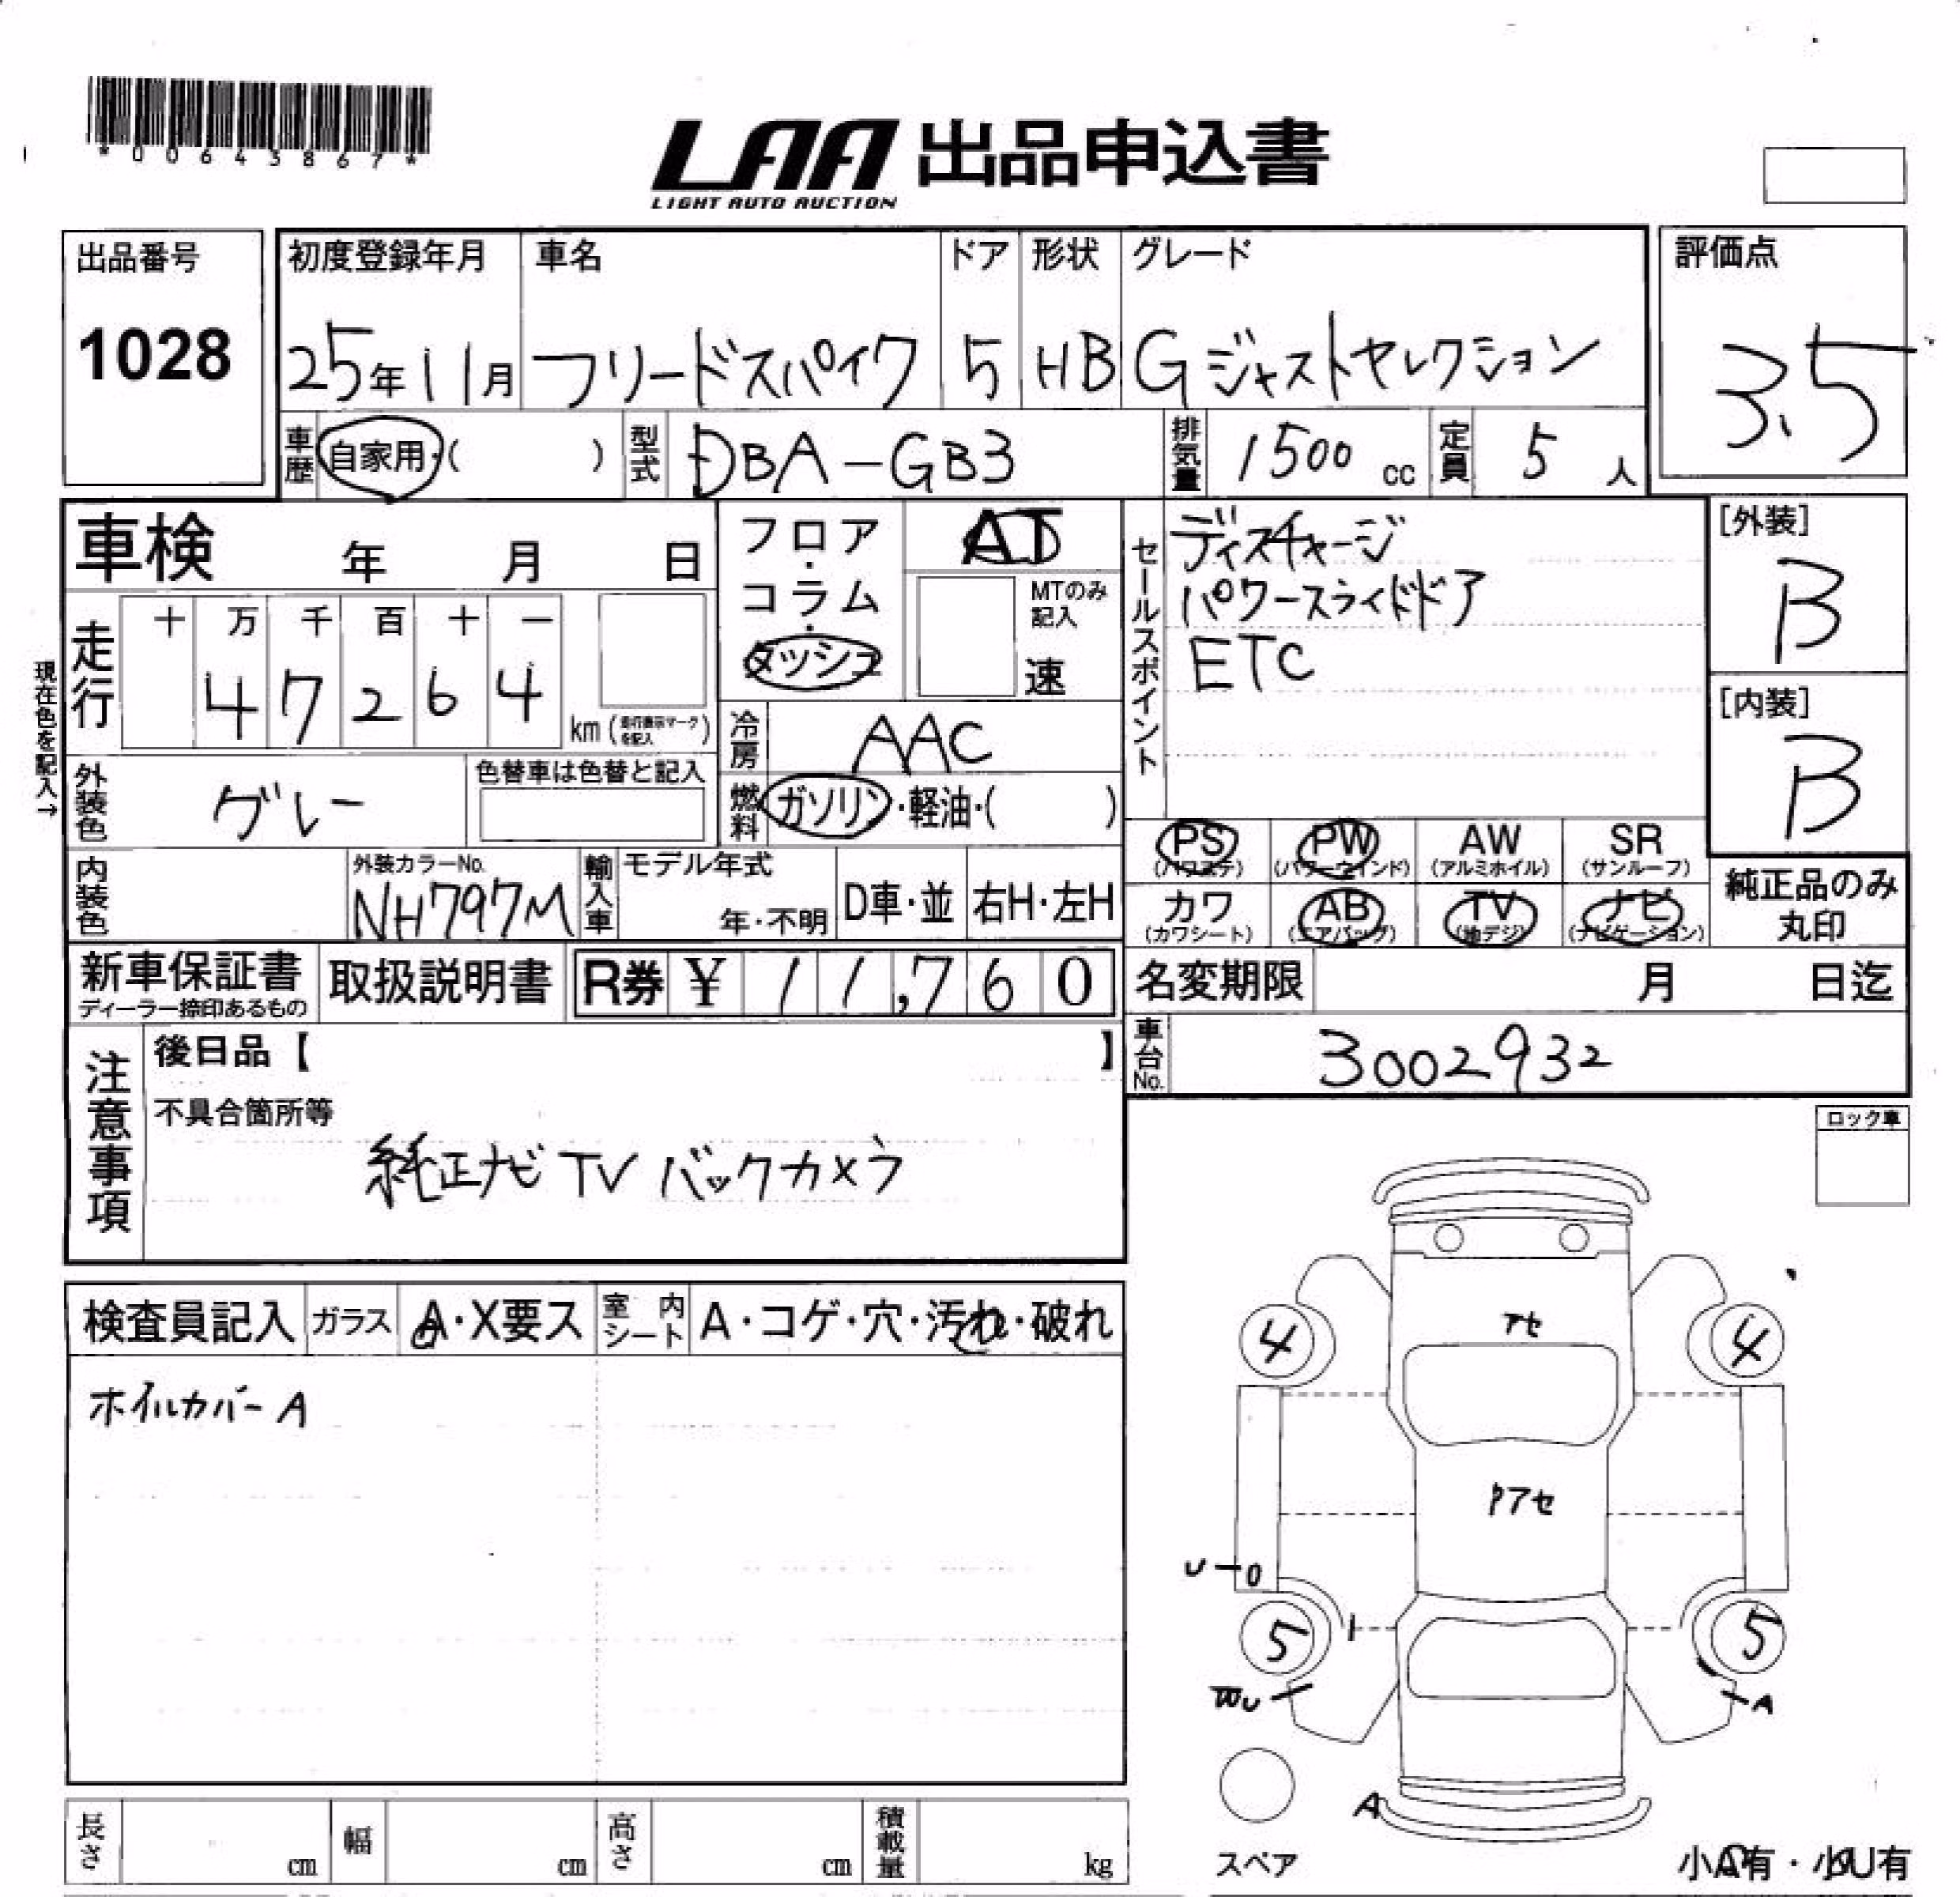 *00643867*
LAA 出品申込書
LIGHT AUTO AUCTION
出品番号
1028
初度登録年月
25年11月
車名
フリードスパイク
ドア
5
形状
HB
グレード
Gジャストセレクション
評価点
3.5
車歴 自家用・( )
型式 DBA-GB3
排気量 1500 cc
定員 5 人
車検 年 月 日
フロア・コラム・ダッシュ
AT
MTのみ記入
速
セールスポイント
ディスチャージ
パワースライドドア
ETC
[外装]
B
[内装]
B
現在色を記入→
走行
十 万 千 百 十 一
4 7 2 6 4
km
冷房 AAC
燃料 ガソリン・軽油・( )
外装色 グレー
色替車は色替と記入
内装色
外装カラーNo.
NH797M
輸入車
モデル年式
年・不明
D車・並
右H・左H
PS
(パワステ)
PW
(パワーウィンド)
AW
(アルミホイル)
SR
(サンルーフ)
カワ
(カワシート)
AB
(エアバッグ)
TV
(地デジ)
ナビ
(ナビゲーション)
純正品のみ
丸印
新車保証書
ディーラー捺印あるもの
取扱説明書
R券 ¥ 11,760
名変期限 月 日迄
車台No. 3002932
注意事項
後日品【 】
不具合箇所等
純正ナビ TV バックカメラ
ロック車
検査員記入
ガラス A・X要ス
室内シート A・コゲ・穴・汚れ・破れ
ホイルカバーA
アセ
4 4
クアセ
U
5 5
A
A
スペア
長さ cm
幅 cm
高さ cm
積載量 kg
小A有・小U有